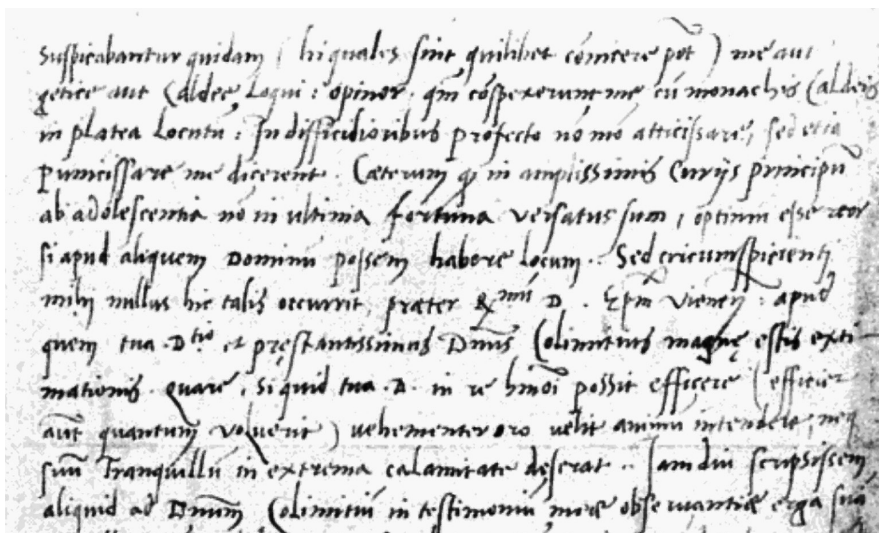 Suspicabantur quidam ( hi quales sint quilibet cōnicere pōt ) me aut
getice aut Caldęe loqui : opinor qm̄ cōspexerunt me cū monachis Caldeis
in platea locutū : In difficilioribus profecto nō mō atticissare, sed etiā
Punicissare me dicerent . Cæterum qȝ in amplissimis Curijs principū
ab adolescentia nō in ultima fortuna versatus sum , optimū esse reor
si apud aliquem Dominū possem habere locum .. Sed circumspicienti
mihi nullus hic talis occurrit, præter R.mū D . Epm̄ Vienen̄ : apud
quem tua D.tio et pręstantissimus Dn̄us Colimitius magnę estis exti-
mationis . quare , si quid tua .D. in re hmōi possit efficere ( efficiet
aūt quantum voluerit ) vehementer oro velit animū intendere, neq
suū Tranquillū in extrema calamitate deserat .. Iamdiu scripsissem
aliquid ad Dn̄um Colimitiū in testimoniū meæ observantiæ erga suā